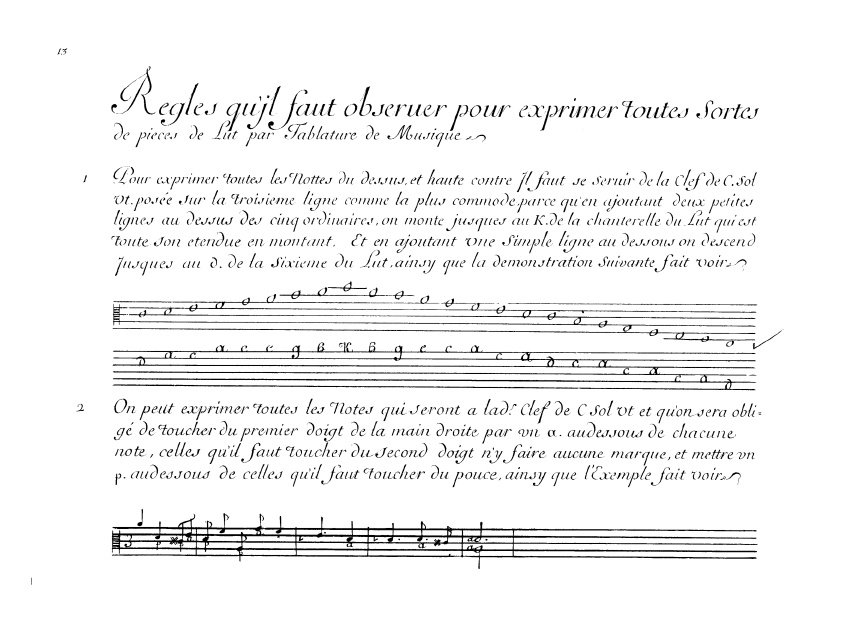 13
Regles qu'jl faut obseruer pour exprimer toutes sortes
de pieces de Lut par Tablature de Musique
1 Pour exprimer toutes les Nottes du dessus, et haute contre Jl faut se seruir de la Clef de C. Sol
Vt. posée sur la troisieme ligne comme la plus commode, parce qu'en ajoutant deux petites
lignes au dessus des cinq ordinaires, on monte jusques au K. de la chanterelle du Lut qui est
toute son etendue en montant. Et en ajoutant vne simple ligne au dessous on descend
Jusques au d. de la sixieme du Lut, ainsy que la demonstration suivante fait voir
d a c a c e g h K h g e c a d c a c a c a d
2 On peut exprimer toutes les Notes qui seront a lad.e Clef de C Sol Vt et qu'on sera obli=
gé de toucher du premier doigt de la main droite par vn a. audessous de chacune
note, celles qu'il faut toucher du second doigt n'y faire aucune marque, et mettre vn
p. audessous de celles qu'il faut toucher du pouce, ainsy que l'Exemple fait voir
3